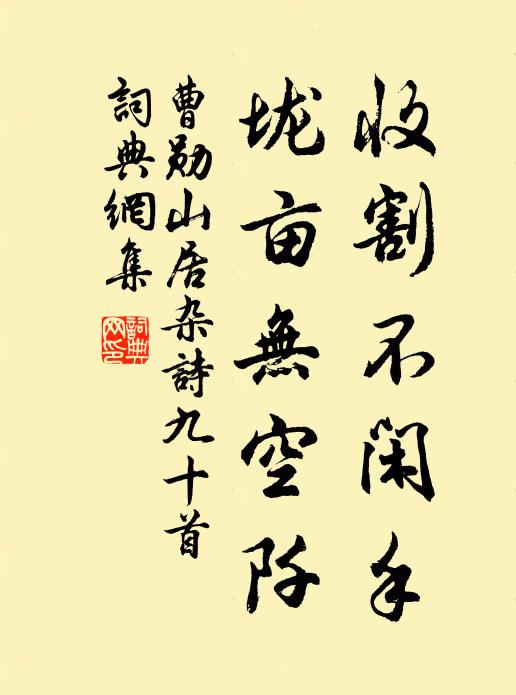 收割不閑手
垅亩無空阡
曹勋山居杂詩九十首
詞典網集
詞典网印